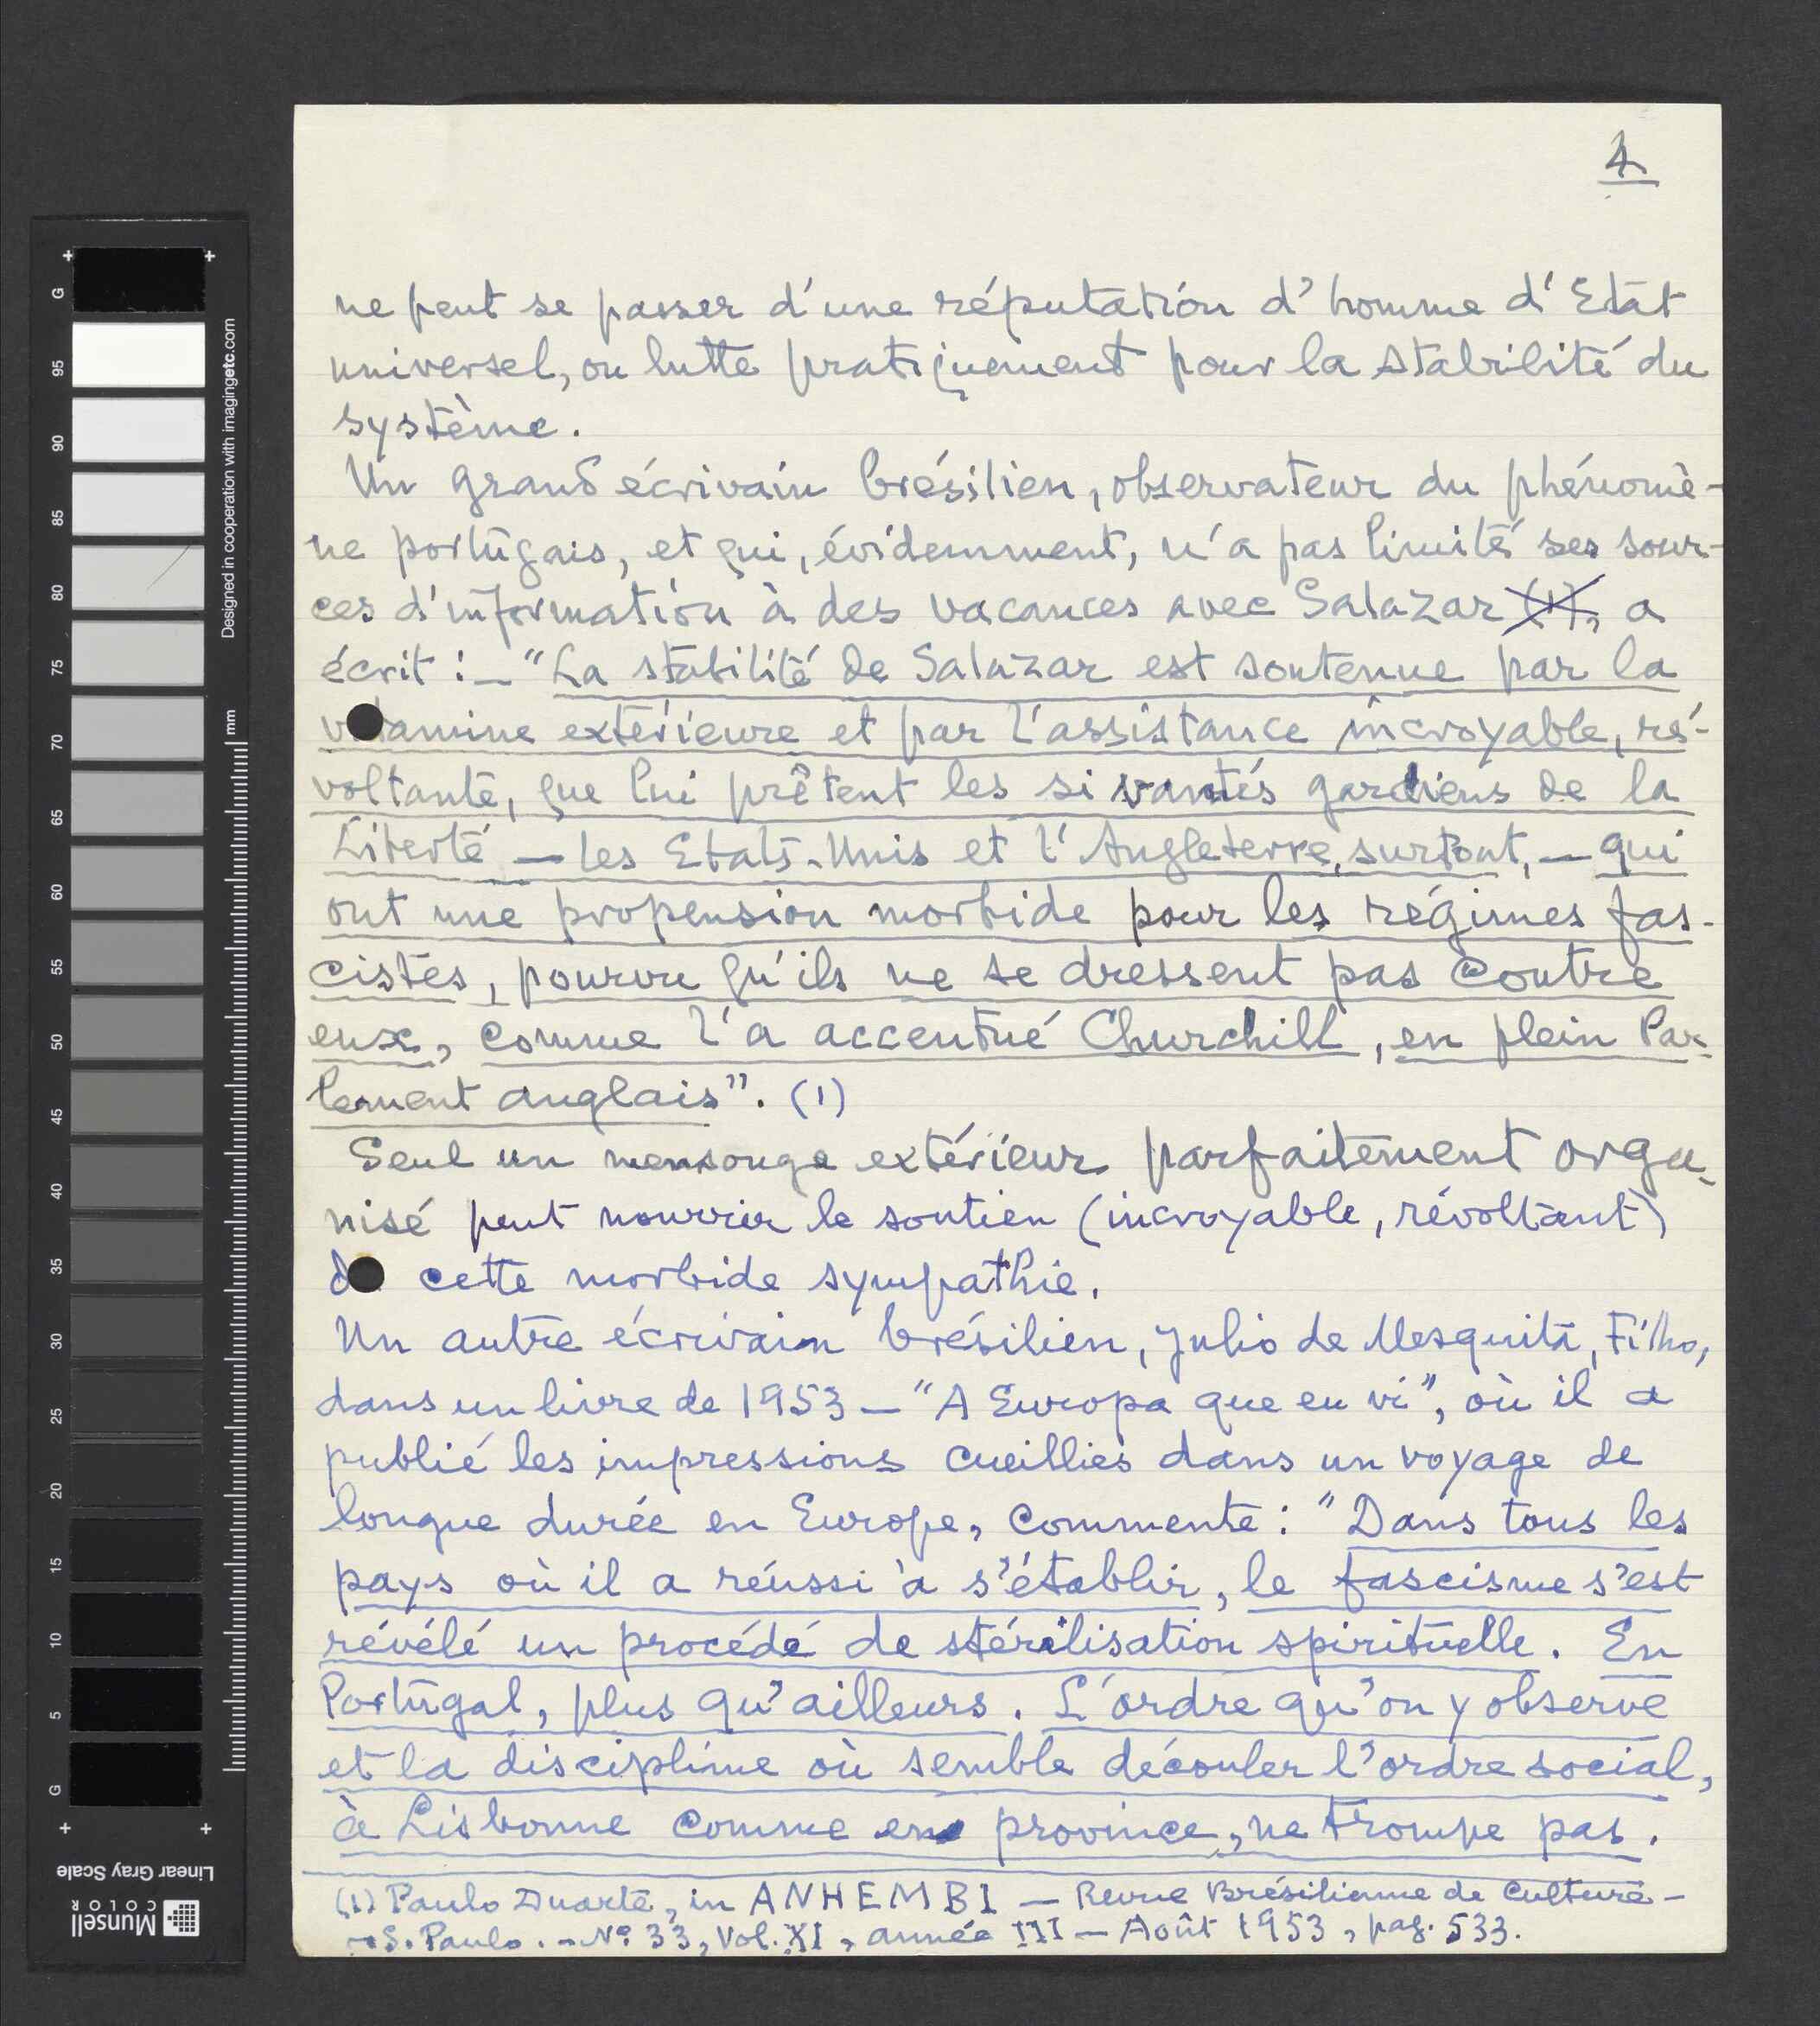 4
ne peut se passer d'une réputation d'homme d'Etat
universel, on lutte pratiquement pour la stabilité du
système.
Un grand écrivain brésilien, observateur du phénomè-
ne portugais, et qui, évidemment, n'a pas limité ses sour-
ces d'information à des vacances avec Salazar (1), a
écrit : — "La stabilité de Salazar est soutenue par la
v amine extérieure et par l'assistance incroyable, ré-
voltante, que lui prêtent les si vantés gardiens de la
Liberté — les Etats-Unis et l'Angleterre, surtout, — qui
ont une propension morbide pour les régimes fas-
cistes, pourvu qu'ils ne se dressent pas contre
eux, comme l'a accentué Churchill, en plein Par-
lement anglais". (1)
Seul un mensonge extérieur parfaitement orga-
nisé peut nourrir le soutien (incroyable, révoltant)
d cette morbide sympathie.
Un autre écrivain brésilien, Julio de Mesquita, Filho,
dans un livre de 1953 — "A Europa que eu vi", où il a
publié les impressions cueillies dans un voyage de
longue durée en Europe, commente : "Dans tous les
pays où il a réussi à s'établir, le fascisme s'est
révélé un procédé de stérilisation spirituelle. En
Portugal, plus qu'ailleurs. L'ordre qu'on y observe
et la discipline où semble découler l'ordre social,
à Lisbonne comme en province, ne trompe pas.
(1) Paulo Duarte, in ANHEMBI — Revue Brésilienne de Culture —
— S. Paulo. — Nº 33, Vol. XI, année III — Août 1953, pag. 533.
G
95
90
85
80
75
70
65
60
55
50
45
40
35
30
25
20
15
10
5
G
Designed in cooperation with imagingetc.com
mm
Linear Gray Scale
Munsell
COLOR